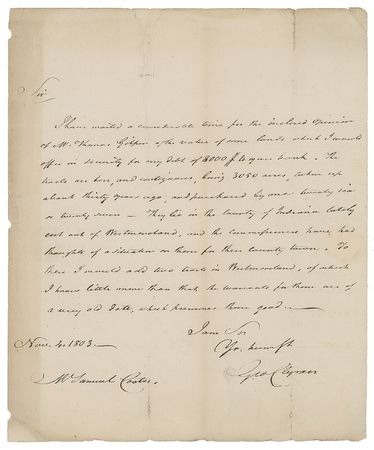 Sir
I have waited a considerable time for the inclosed opinion
of Mr. Thomas Gilpin of the value of some lands which I would
offer in security for my debt of 8000 $ to your bank. The
tracts are two, and contiguous, being 3050 acres, taken up
about thirty years ago, and purchased by me twenty six
or twenty seven — They lie in the County of Indiana lately
cut out of Westmoreland, and the commissioners have had
thoughts of a situation on them for their county town. To
these I would add two tracts in Westmoreland, of which
I know little more than that the warrants for them are of
a very old date, which presumes them good —
I am Sir
Yr. hum St
Geo Clymer
Nov. 4. 1803 —
Mr Samuel Coates.